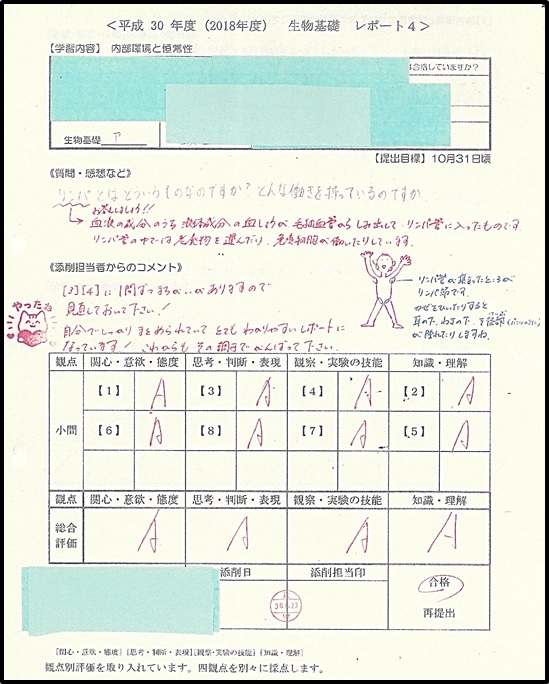 <平成 30 年度 (2018年度) 生物基礎 レポート4>
【学習内容】 内部環境と恒常性
合格していますか?
生物基礎 ア
【提出目標】10月31日頃
《質問・感想など》
リンパとはどういうものなのですか? どんな働きを持っているのですか
お答えしましょう!!
→ 血液の成分のうち 液体成分の血しょうが 毛細血管からしみ出して リンパ管に入ったものです。
リンパ管の中では老廃物を運んだり、免疫細胞が働いたりしています。
《添削担当者からのコメント》
[3][4]に1問ずつ がありますので
見直しておいて下さい!
自分でしっかりまとめられていて とても わかりやすいレポートに
なっています! これからも その調子で がんばって下さい。
やったね
リンパ管が集まったところが
リンパ節です。
かぜをひいたりすると
耳の下、わきの下
が腫れたりしますね。
観点 関心・意欲・態度 思考・判断・表現 観察・実験の技能 知識・理解
小問 【1】 A 【3】 A 【4】 A 【2】 A
【6】 A 【8】 A 【7】 A 【5】 A
観点 関心・意欲・態度 思考・判断・表現 観察・実験の技能 知識・理解
総合評価 A A A A
添削日 添削担当印 合格
再提出
[関心・意欲・態度] [思考・判断・表現] [観察・実験の技能] [知識・理解]
観点別評価を取り入れています。四観点を別々に採点します。